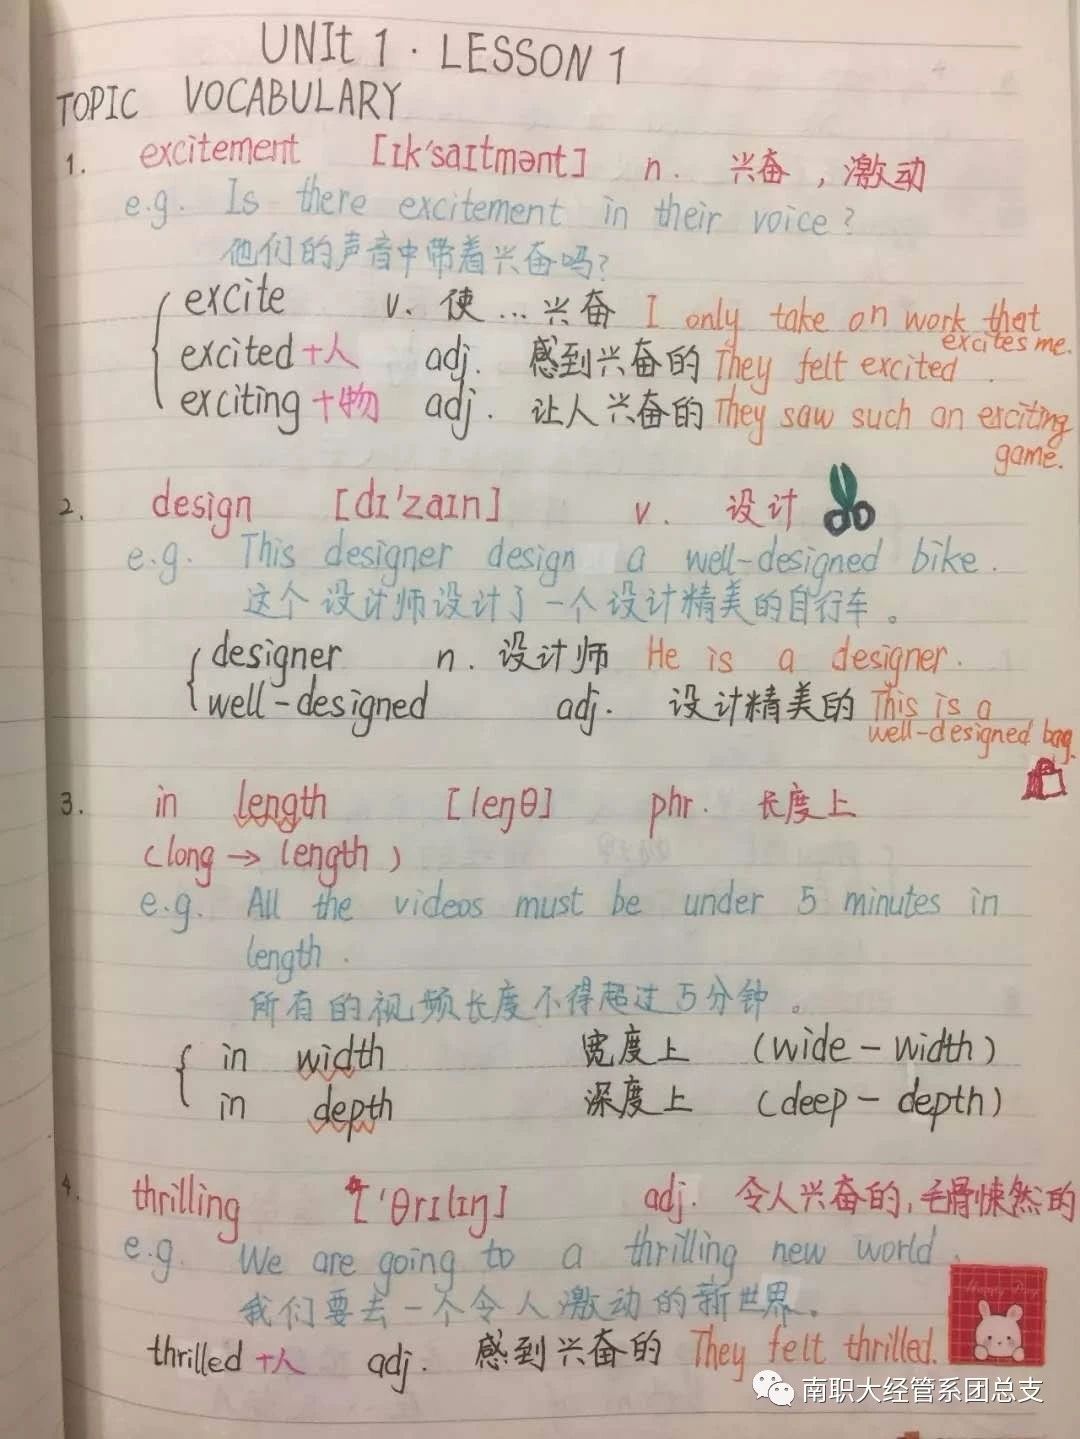 UNIt 1 · LESSON 1
TOPIC VOCABULARY
1. excitement [ɪk'saɪtmənt] n. 兴奋，激动
e.g. Is there excitement in their voice?
他们的声音中带着兴奋吗?
excite v. 使...兴奋 I only take on work that
excites me.
excited+人 adj. 感到兴奋的 They felt excited.
exciting+物 adj. 让人兴奋的 They saw such an exciting
game.
2. design [dɪ'zaɪn] v. 设计
e.g. This designer design a well-designed bike.
这个设计师设计了一个设计精美的自行车。
designer n. 设计师 He is a designer.
well-designed adj. 设计精美的 This is a
well-designed bag.
3. in length [leŋθ] phr. 长度上
(long → length)
e.g. All the videos must be under 5 minutes in
length.
所有的视频长度不得超过5分钟。
in width 宽度上 (wide - width)
in depth 深度上 (deep - depth)
4. thrilling ['θrɪlɪŋ] adj. 令人兴奋的,毛骨悚然的
e.g. We are going to a thrilling new world.
我们要去一个令人激动的新世界。
thrilled +人 adj. 感到兴奋的 They felt thrilled.
南职大经管系团总支